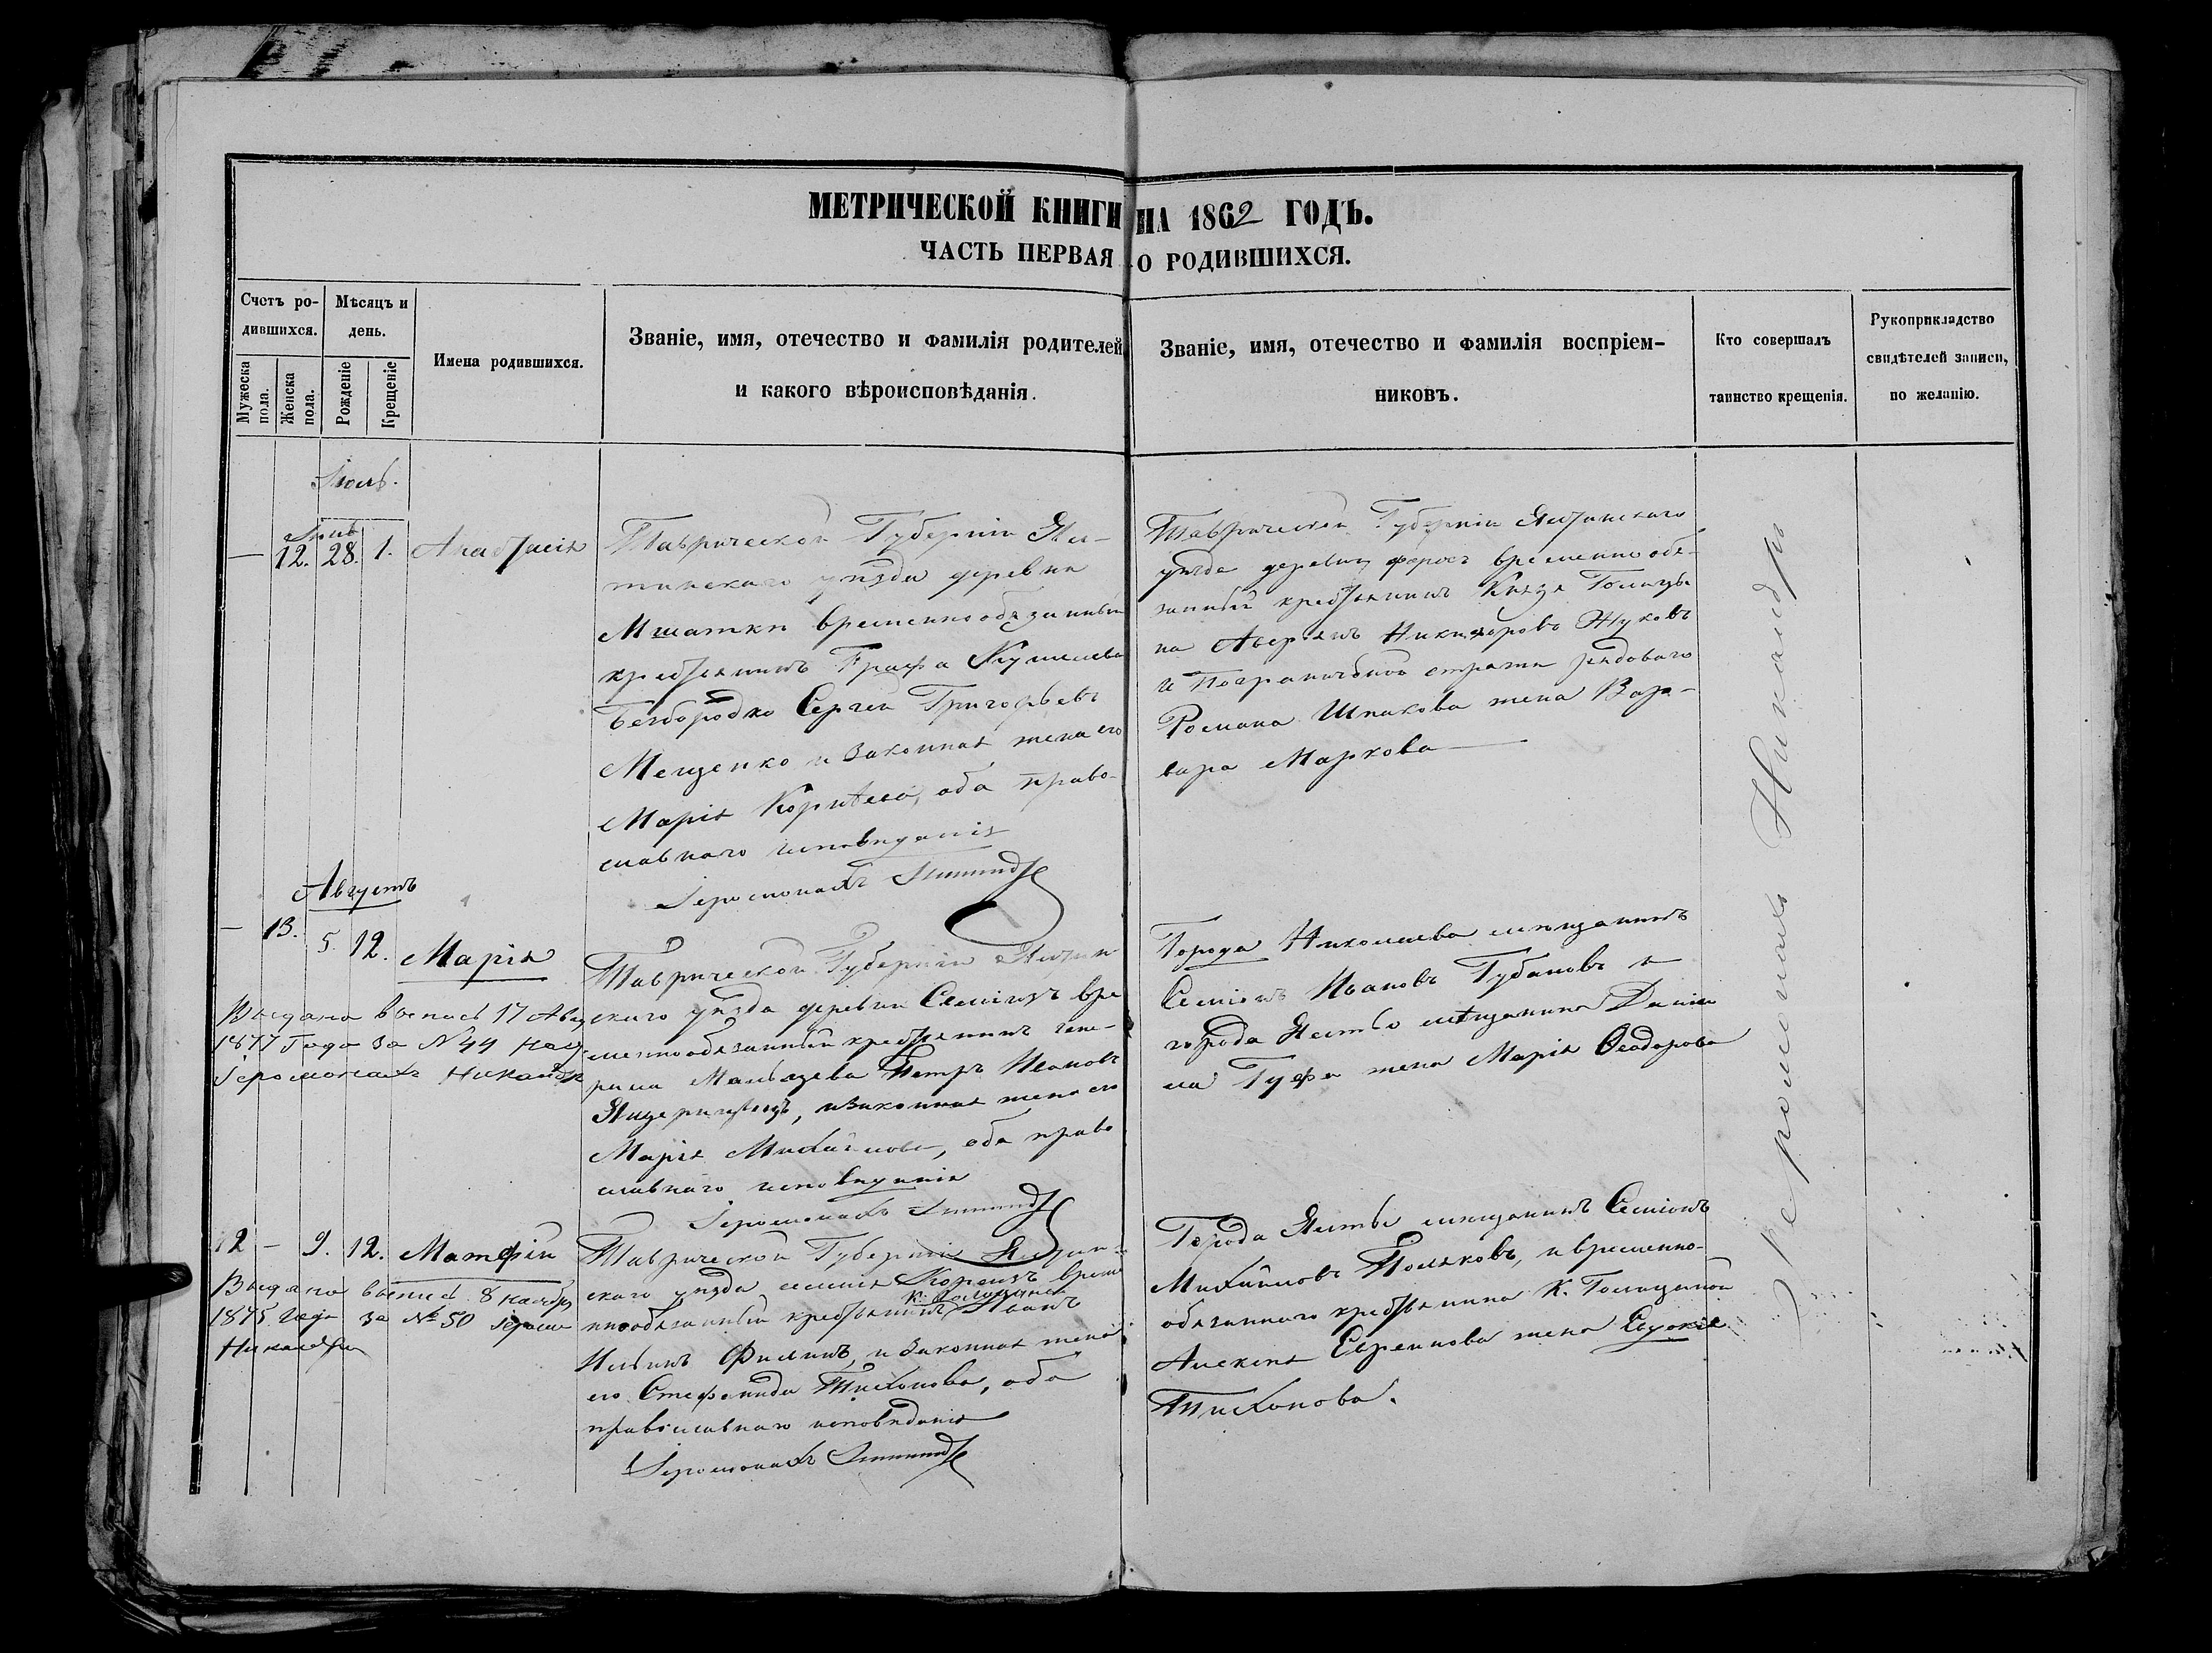 МЕТРИЧЕСКОЙ КНИГИ НА 1862 ГОДЪ.
ЧАСТЬ ПЕРВАЯ О РОДИВШИХСЯ.
Счетъ ро-
дившихся.
Мужеска
пола.
Женска
пола.
Мѣсяцъ и
день.
Рожденіе
Крещеніе
Имена родившихся.
Званіе, имя, отечество и фамилія родителей
и какого вѣроисповѣданія.
Званіе, имя, отечество и фамилія воспріем-
никовъ.
Кто совершалъ
таинство крещенія.
Рукоприкладство
свидѣтелей записи,
по желанію.
Іюль.
Іюнь
— 12. 28. 1. Анастасія
Таврической Губерніи Ял-
тинскаго уѣзда деревни
Мшатки временнообязанный
крестьянинъ Графа Кушелева
Безбородко Сергѣй Григорьевъ
Мещенко и законная жена его
Марія, оба право-
славнаго исповѣданія
Іеромонахъ
Таврической Губерніи Ялтинскаго
уѣзда деревни Форосъ временнообя-
занный крестьянинъ Князя Голицы-
на Аверьянъ Никифоровъ Жуковъ
и Пограничной стражи рядоваго
Романа Шпакова жена Вар-
вара Маркова
Іеромонахъ Никандръ
Августъ
— 13. 5. 12. Марія
Выдана выпись 17 Авг
1877 Года за N 44
Іеромонахъ Никандръ
Таврической Губерніи Ялтин
скаго уѣзда деревни Симеизъ вре
меннообязанный крестьянинъ гене-
рала Мальцева Петръ Ивановъ
и законная жена его
Марія Михайлова, оба право
славнаго исповѣданія
Іеромонахъ
Города Николаева мѣщанинъ
Семіонъ Ивановъ Губановъ и
города Ялты мѣщанина Дани
ла Гуфа жена Марія Ѳеодорова
12 — 9. 12. Матфій
Выдана выпись 8 ноября
1875 года за № 50 Іером
Никандръ
Таврической Губерніи Ялтин-
скаго уѣзда имѣнія Кореизъ време
ннообязанный крестьянинъ К. Голицына Иванъ
Ильинъ Филинъ, и законная жена
его Стефанида Тихонова, оба
православнаго исповѣданія
Іеромонахъ
Города Ялты мѣщанинъ Семіонъ
Михайловъ Поляковъ, и временно-
обязаннаго крестьянина К. Голицыной
Алексѣя Евреинова жена Евдокія
Тихонова.